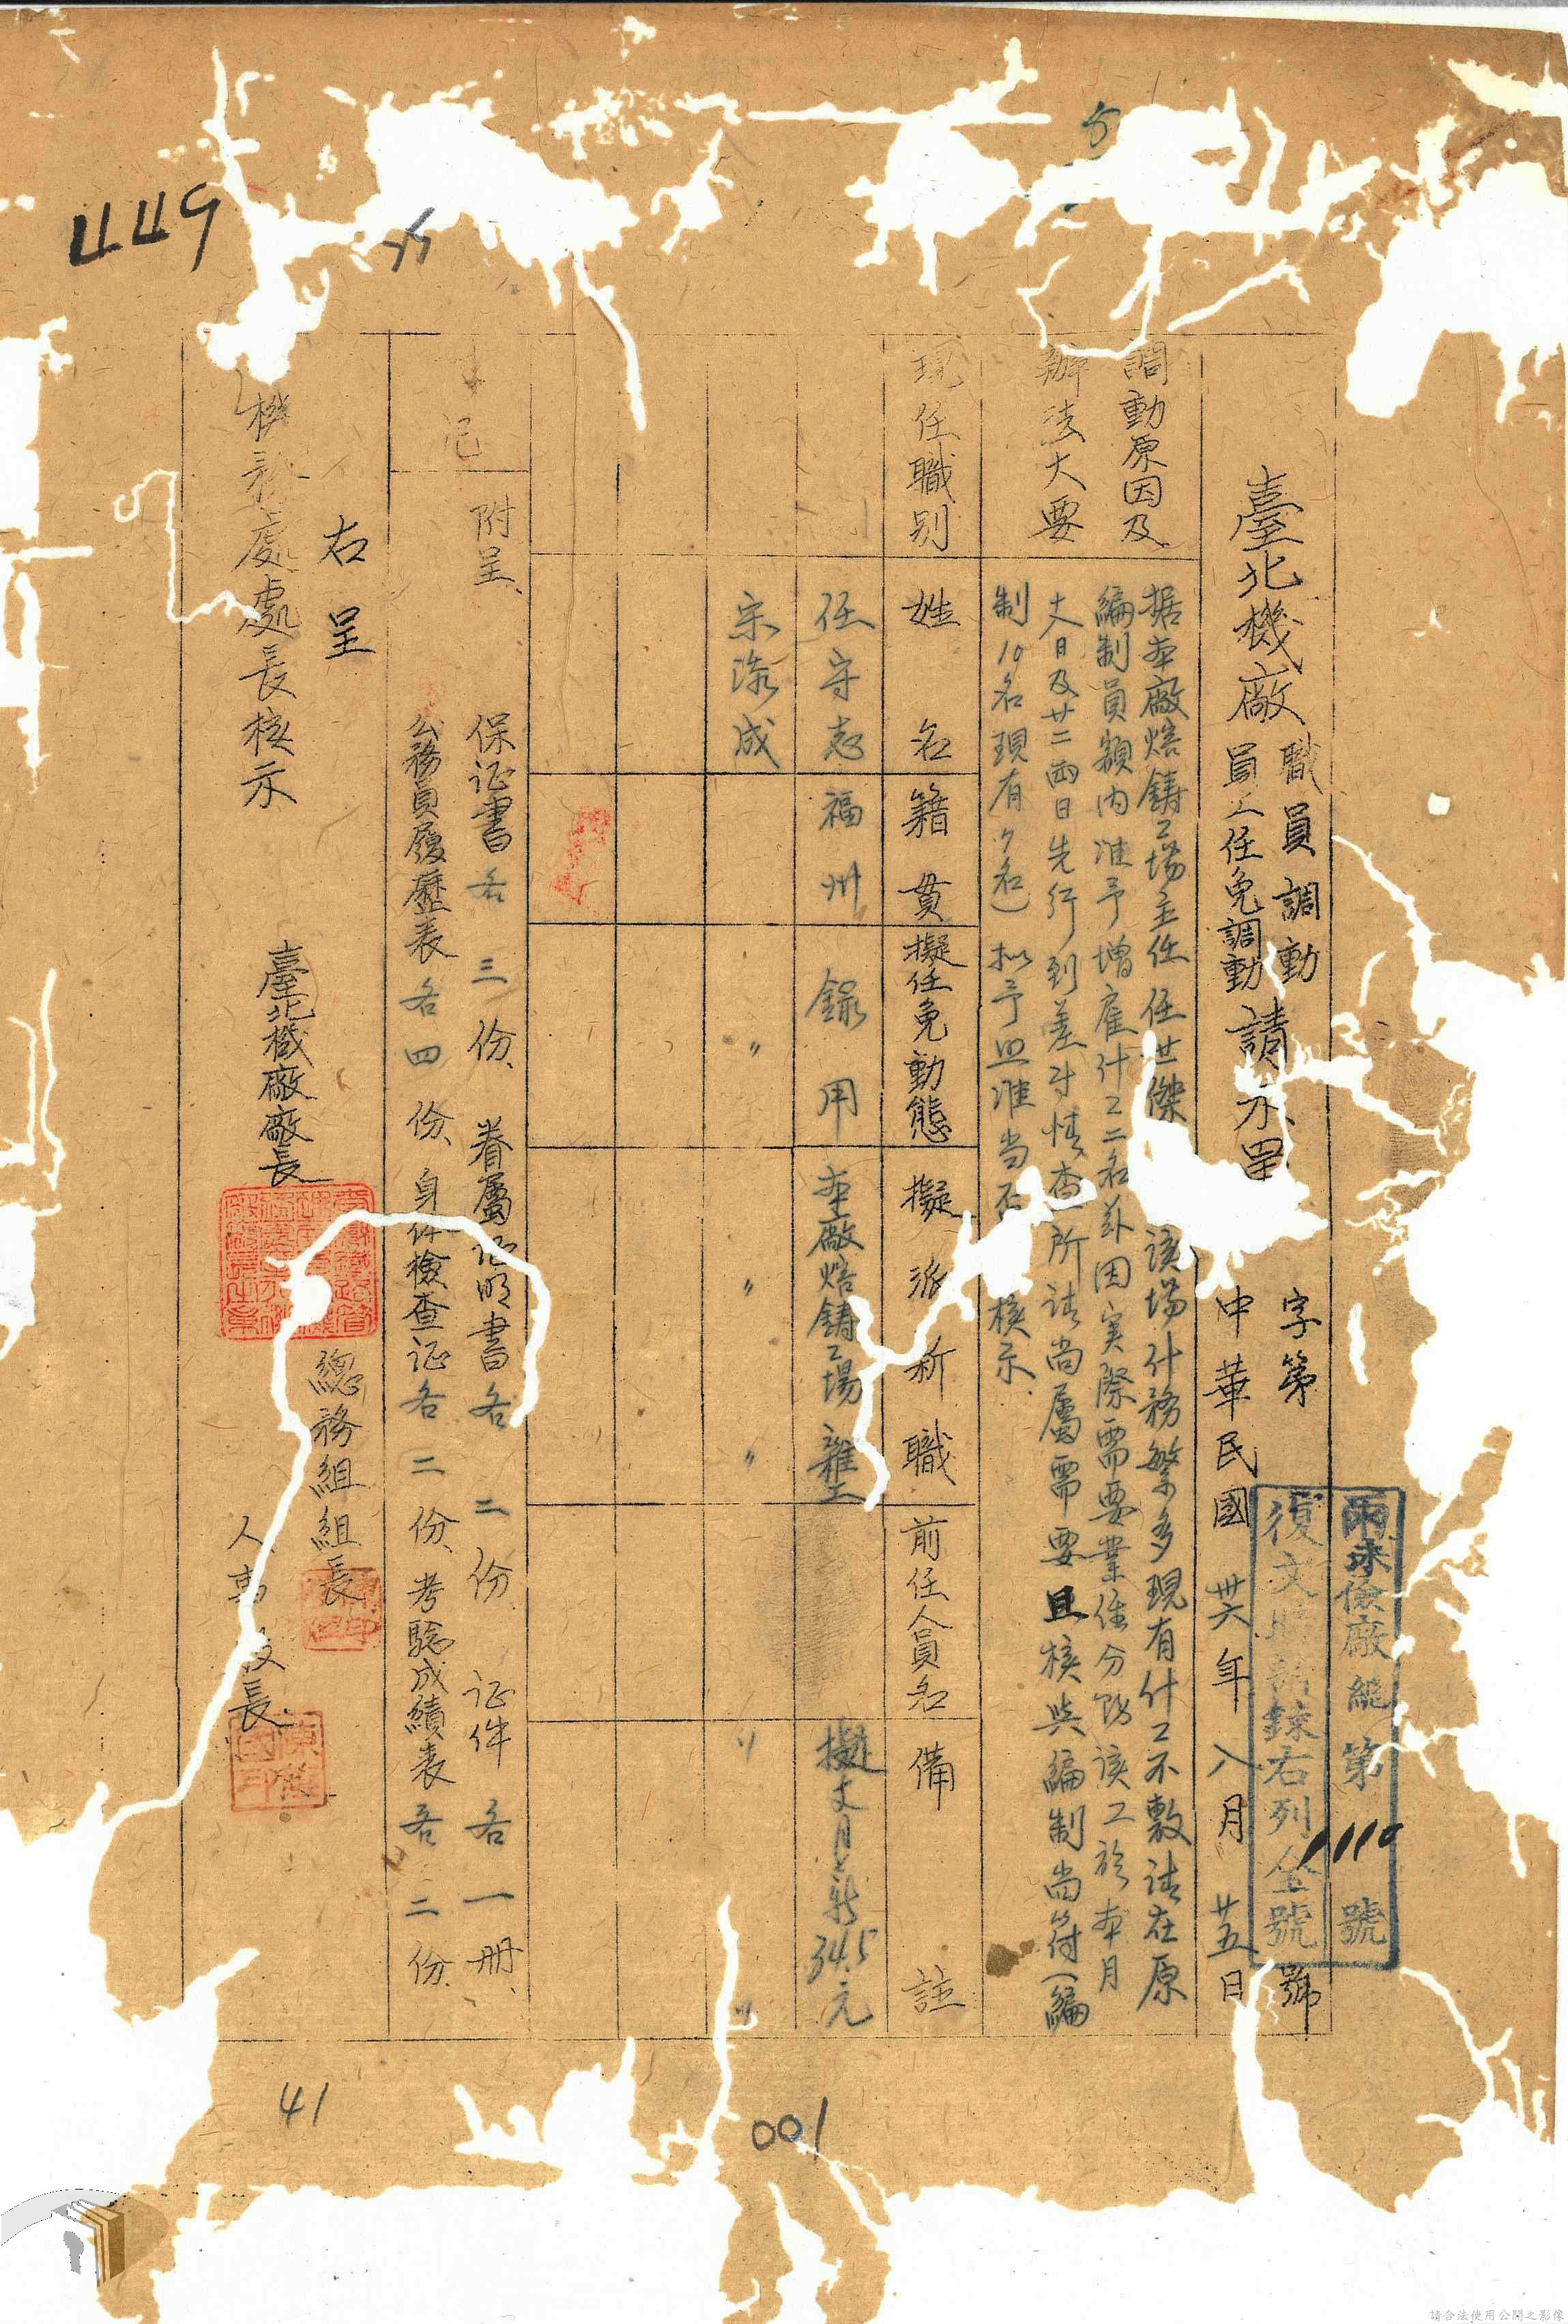 449
臺北機廠
職員調動
員工任免調動
請示單
字第 號
中華民國卅六年八月廿五日
廠 第1110號
復文時請錄右列全號
調動原因及
辦法大要
据本廠熔鑄工場主任 任世傑 該場什務繁多現有什工不敷請在原
編制員額內准予增雇什工二名并因实際需要業經分防該工於本月
日及廿二兩日先行到差 情查所請尚屬需要且核與編制尚符(編
制10名現有 名)拟予照准当否 核示
現任職別
姓名
籍貫
擬任免動態
擬派新職
前任人員名
備註
任守志
福州
錄用
本廠熔鑄工場雜工
擬支月薪34.5元
宋 成
〃
〃
〃
〃
〃
記
附呈、
保证書各三份、眷屬证明書各二份 证件各一册、
公務員履歷表各四份、身体檢查证各二份、考驗成績表各二份、
右呈
機務處處長核示
臺北機廠廠長
總務組組長
人事 長
41
001
請合法使用公開之影像